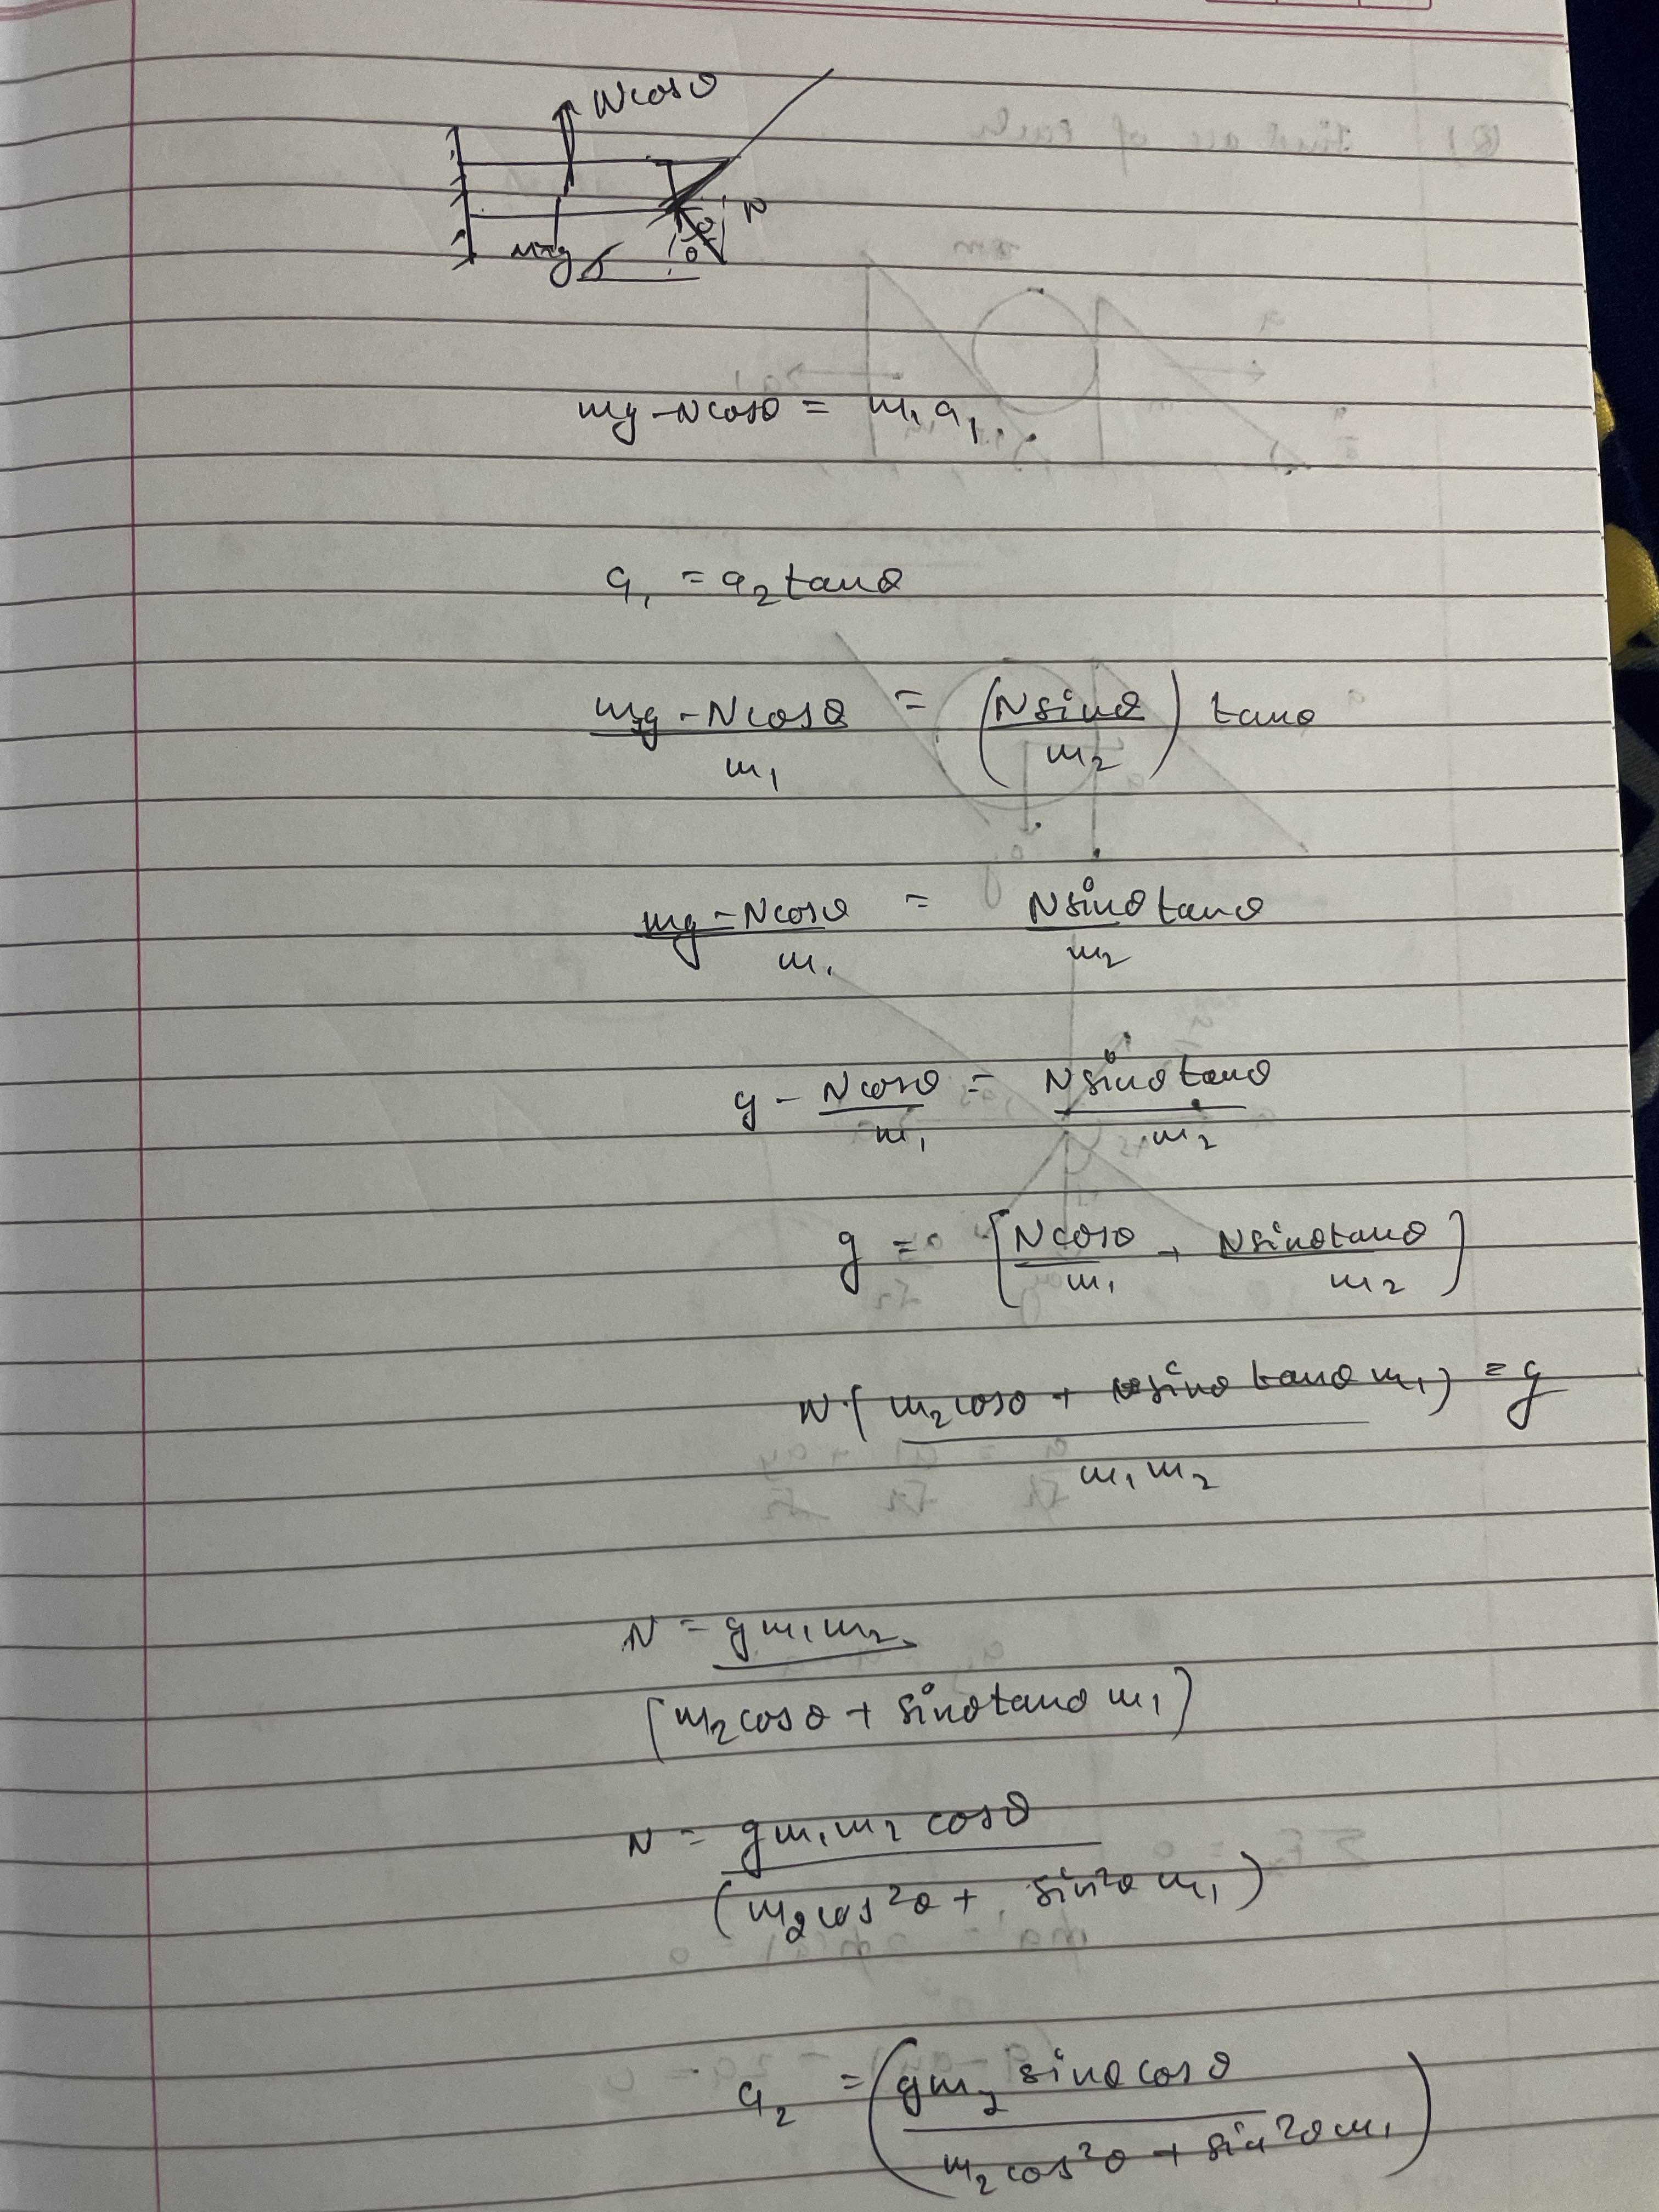 N cosθ
N
θ
θ
m₁g
mg - N cosθ = m₁ a₁
a₁ = a₂ tanθ
m₁g - N cosθ / m₁ = (N sinθ / m₂) tanθ
mg - N cosθ / m₁ = N sinθ tanθ / m₂
g - N cosθ / m₁ = N sinθ tanθ / m₂
g = [N cosθ / m₁ + N sinθ tanθ / m₂]
N (m₂ cosθ + sinθ tanθ m₁) / m₁ m₂ = g
N = g m₁ m₂ / [m₂ cosθ + sinθ tanθ m₁]
N = g m₁ m₂ cosθ / (m₂ cos²θ + sin²θ m₁)
a₂ = (g m₂ sinθ cosθ / m₂ cos²θ + sin²θ m₁)